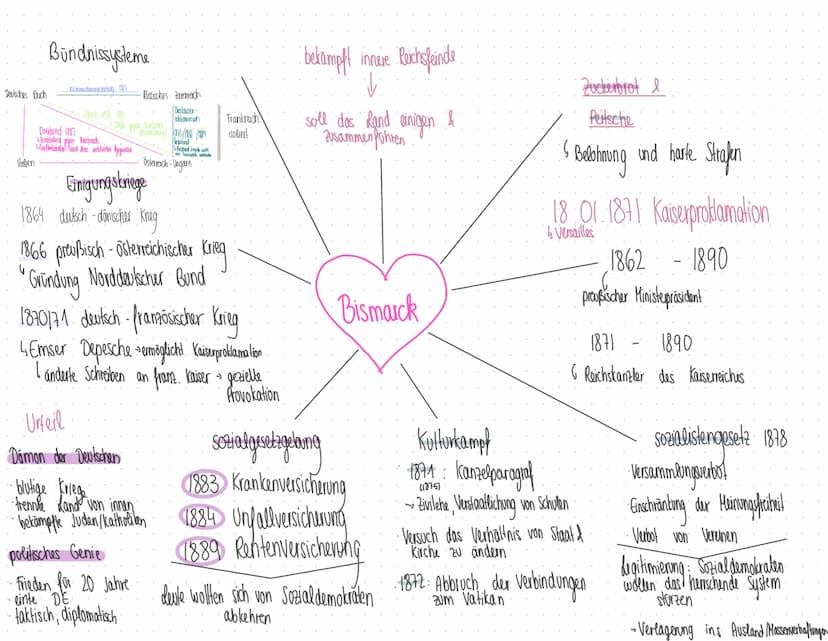 Bündnissysteme
Deutsches Reich
Frankreich
isoliert
Italien
Österreich-Ungarn
bekämpft innere Reichsfeinde
soll das Land einigen &
zusammenführen
Zuckerbrot &
Peitsche
Belohnung und harte Strafen
Einigungskriege
1864 deutsch-dänischer Krieg
1866 preußisch-österreichischer Krieg
Gründung Norddeutscher Bund
1870/71 deutsch-französischer Krieg
Emser Depesche → ermöglicht Kaiserproklamation
änderte Schreiben an franz. Kaiser → gezielte
Provokation
Bismarck
18.01.1871 Kaiserproklamation
Versailles
1862 - 1890
preußischer Ministerpräsident
1871 - 1890
Reichskanzler des Kaiserreiches
Urteil
Dämon der Deutschen
· blutige Kriege
· trennte Land von innen
· bekämpfte Juden/Katholiken
politisches Genie
· Frieden für 20 Jahre
· einte DE
· taktisch, diplomatisch
Sozialgesetzgebung
1883 Krankenversicherung
1884 Unfallversicherung
1889 Rentenversicherung
Leute wollten sich von Sozialdemokraten
abkehren
Kulturkampf
· 1871: Kanzelparagraf
(1875)
→ Zivilehe, Verstaatlichung von Schulen
· Versuch das Verhältnis von Staat &
Kirche zu ändern
· 1872: Abbruch der Verbindungen
zum Vatikan
Sozialistengesetz 1878
· Versammlungsverbot
· Einschränkung der Meinungsfreiheit
· Verbot von Vereinen
Legitimierung: Sozialdemokraten
wollen das herrschende System
stürzen
→ Verlagerung ins Ausland/Massenverhaftungen